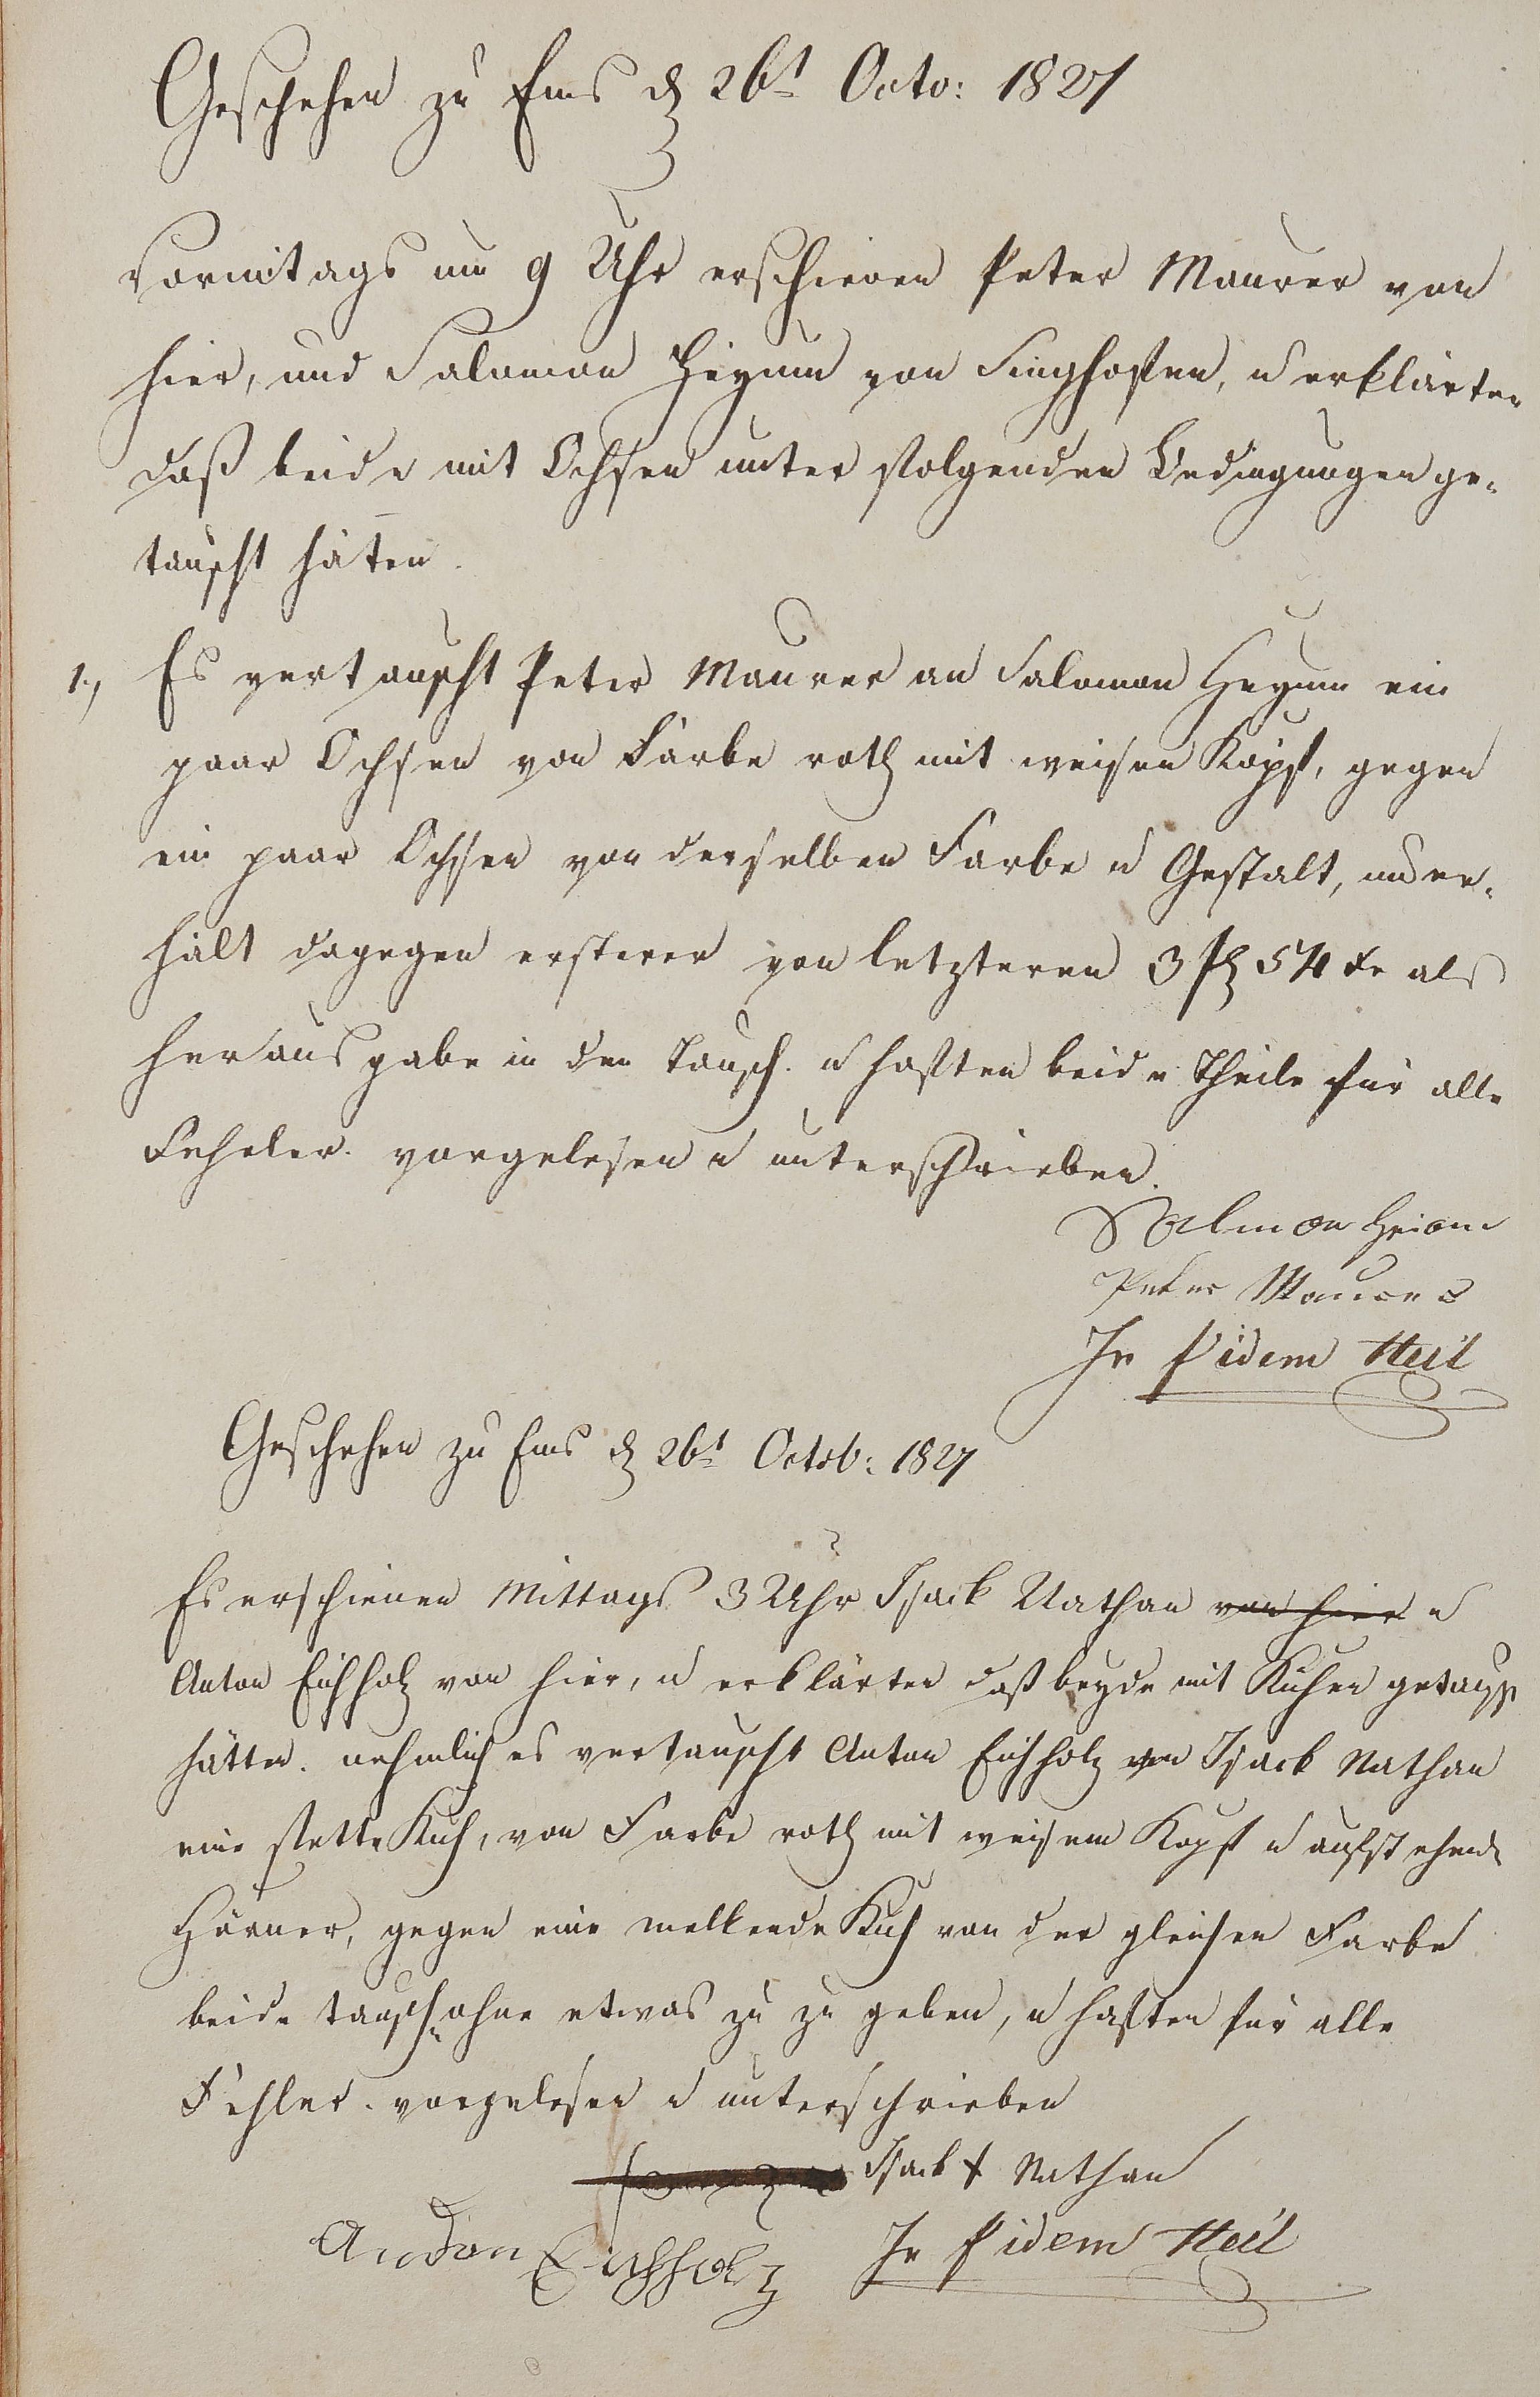 Geschehen zu Ems d 26t Octo: 1827
Vormitags um 9 Uhr erschienen Peter Maurer von
hier, und Salomon Heyum von Singhofen, u erklärten
daß beide mit Ochsen unter folgenden Bedingungen ge-
tauscht häten.
1., Es vertauscht Peter Maurer an Salomon Heyum ein
paar Ochsen von Farbe roth mit weisen Kopf, gegen
ein paar Ochsen von derselben Farbe u Gestalt, und er-
hält dagegen ersterer von letzteren 3 fl 54 Xr als
herausgabe in den Tausch. u haften beide Theile für alle
Fehler. vorgelesen u unterschrieben.
Salmon Heiom
Peter Maurer
In fidem Heil
Geschehen zu Ems d 26t Octob: 1827
Es erschienen Mittags 3 Uhr Isack Nathan von hier u
Anton Eichholz von hier, u erklärten daß beyde mit Kühen getauscht
hätten. nehmlich es vertauscht Anton Eichholz von Isack Nathan
eine fette Kuh, von Farbe roth mit weisem Kopf u aufstehende
Hörner, gegen eine melkende Kuh von der gleichen Farbe
beide tauschen ohne etwas zu zu geben, u haften für alle
Fehler. vorgelesen u unterschrieben
Isack + Nathan
Andon Eichholz In fidem Heil